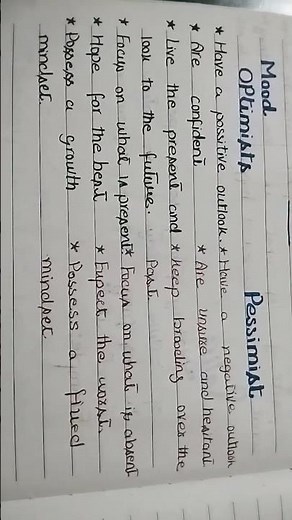 Mood
Optimists Pessimist
* Have a positive outlook. * Have a negative outlook
* Are confident * Are unsure and hesitant
* Live the present and * Keep brooding over the
look to the future. Past.
* Focus on what is present * Focus on what is absent
* Hope for the best * Expect the worst.
* Possess a growth * Possess a fixed
mindset. mindset